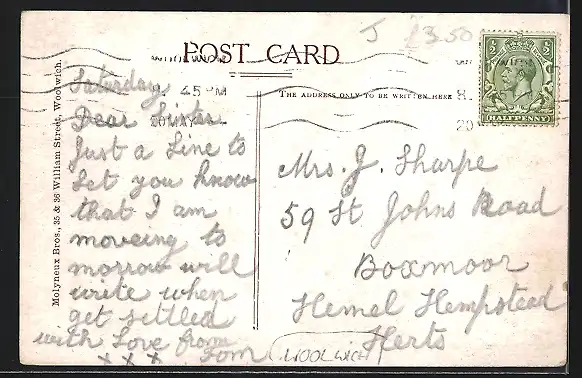 POST CARD
J £3.50
WOOLWICH
45 PM
20 MAY
8.
20
HALFPENNY
THE ADDRESS ONLY TO BE WRITTEN HERE
Molyneux Bros., 35 & 36 William Street, Woolwich.
Saturday
Dear Sister
Just a Line to
Let you know
that I am
moveing to
morrow will
write when
get settled
with Love from
x x x Tom
Mrs. J. Sharpe
59 St Johns Road
Boxmoor
Hemel Hempstead
Herts
WOOLWICH